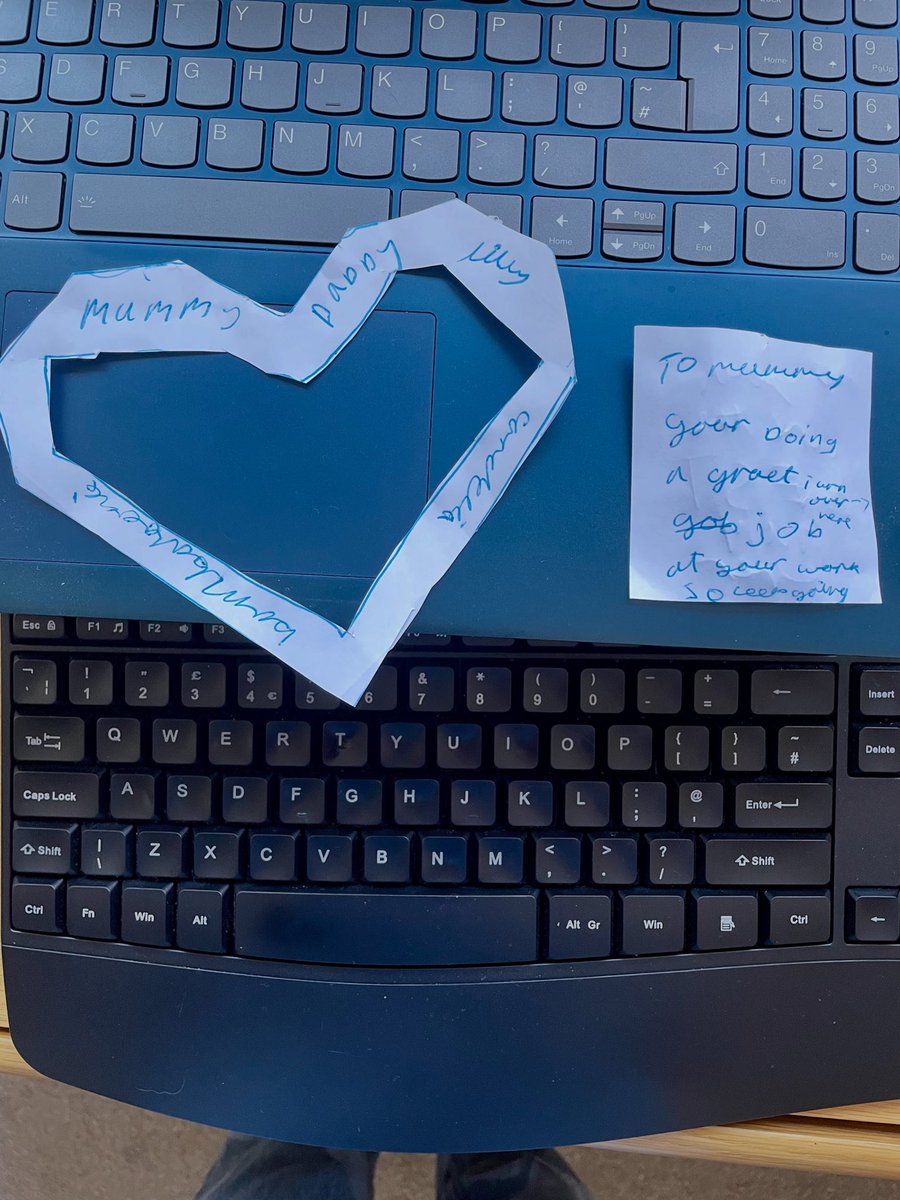 E R T Y U I O P { [ } ] 7 Home 8 9 PgUp
S D F G H J K L : ; @ ' ~ # 4 5 6
X C V B N M < , > . ? / 1 End 2 3 PgDn
Alt Home PgUp PgDn End 0 Ins . Del
mummy
Daddy
Lilly
To mummy
your Doing
a graet
job
at your work
so keep going
turn
over
here
Esc F1 F2 F3
! 1 " 2 £ 3 $ 4 € 5 6 & 7 * 8 ( 9 ) 0 - + = Insert
Tab Q W E R T Y U I O P { [ } ] ~ # Delete
Caps Lock A S D F G H J K L : ; @ ' Enter
Shift | \ Z X C V B N M < , > . ? / Shift
Ctrl Fn Win Alt Alt Gr Win Ctrl